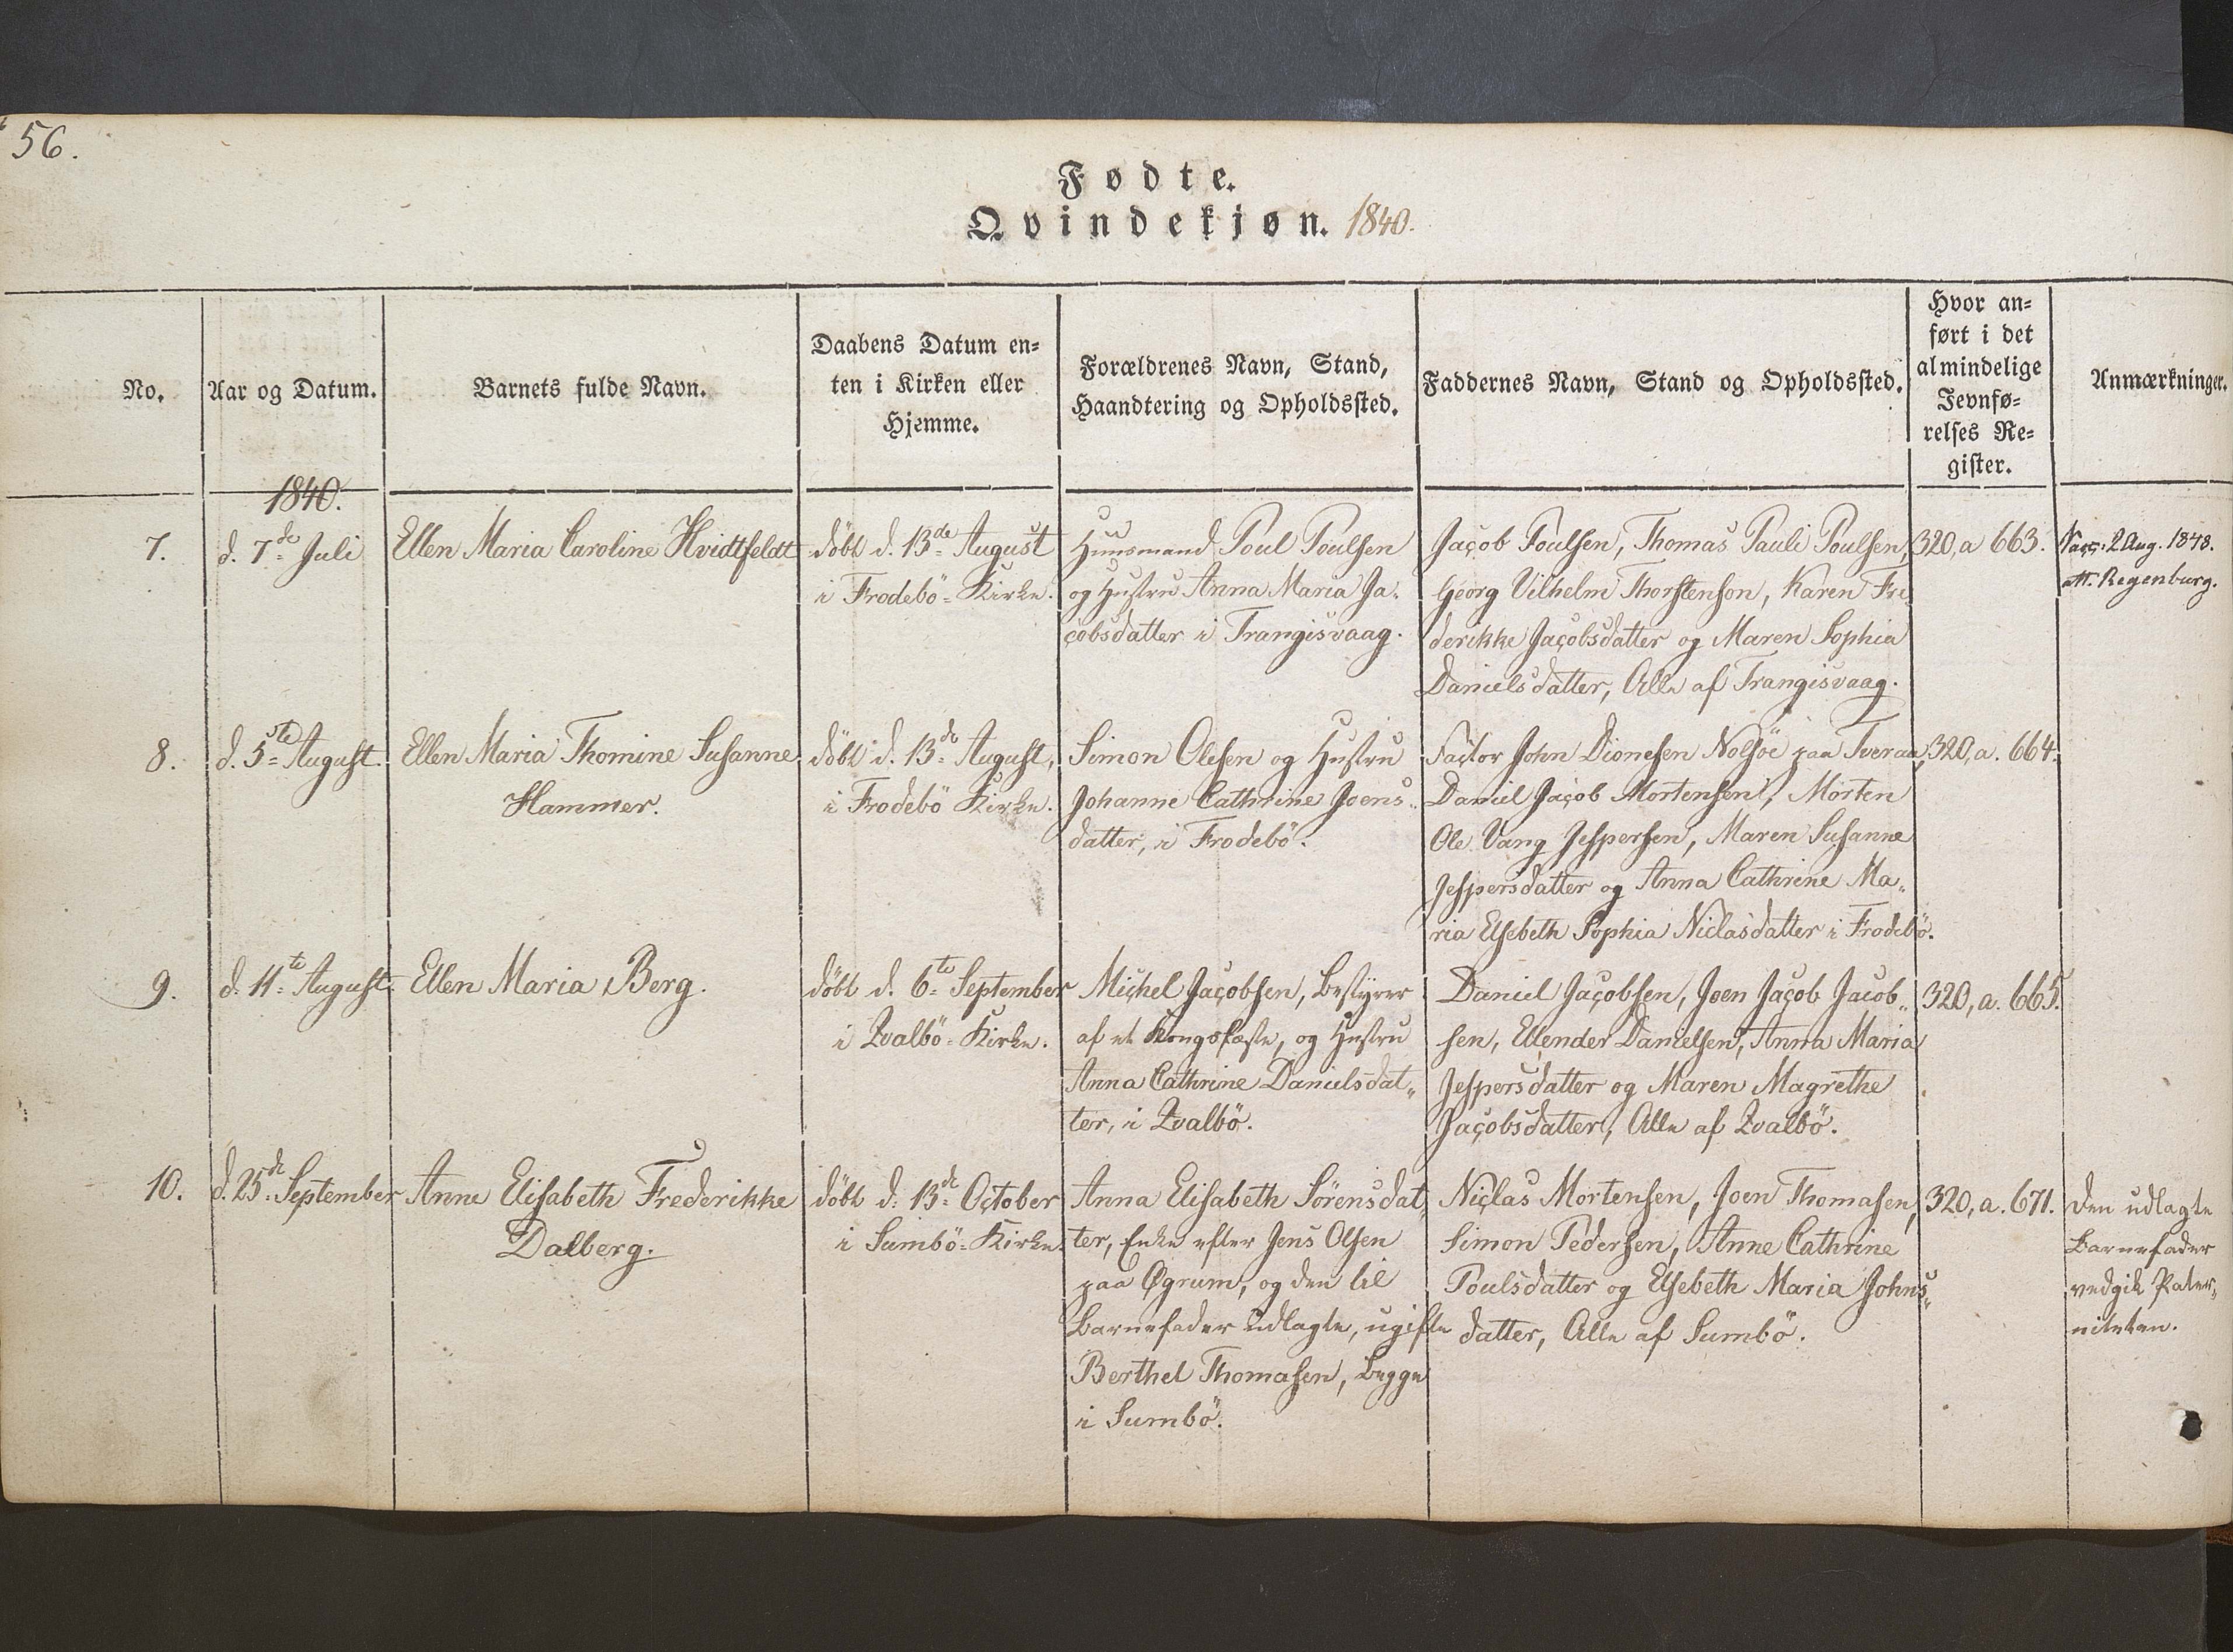 56.
Fødte.
Qvindekjøn. 1840.
No.
Aar og Datum.
Barnets fulde Navn.
Daabens Datum en=
ten i Kirken eller
Hjemme.
Forældrenes Navn, Stand,
Haandtering og Opholdssted.
Faddernes Navn, Stand og Opholdssted.
Hvor an=
ført i det
almindelige
Jevnfø=
relses Re=
gister.
Anmærkninger.
1840.
7.
d. 7de Juli
Ellen Maria Caroline Hvidtfeldt
döbt d. 13de August
i Frodebö-Kirke.
Huusmand Poul Poulsen
og Hustru Anna Maria Ja-
cobsdatter i Trangisvaag.
Jacob Poulsen, Thomas Pauli Poulsen,
Georg Vilhelm Thorstenson, Karen Fre
derikke Jacobsdatter og Maren Sophia
Danielsdatter, Alle af Trangisvaag.
320, a 663.
Vacc: 2 Aug. 1848.
af Regenburg.
8.
d. 5te August.
Ellen Maria Thomine Susanne
Hammer.
döbt d. 13de August,
i Frodebö Kirke.
Simon Olesen og Hustru
Johanne Cathrine Joens-
datter, i Frodebö.
Factor John Dionesen Nolsöe paa Tveraa,
Daniel Jacob Mortensen, Morten
Ole Vang Jespersen, Maren Susanne
Jespersdatter og Anna Cathrine Ma-
ria Elsebeth Sophia Niclasdatter i Frodebö.
320, a. 664.
9.
d. 11te August.
Ellen Maria Berg.
döbt d. 6te September
i Qvalbö-Kirke.
Michel Jacobsen, Bestyrer
af et Kongsfæste, og Hustru
Anna Cathrine Danielsdat-
ter, i Qvalbö.
Daniel Jacobsen, Joen Jacob Jacob-
sen, Ellender Danielsen, Anna Maria
Jespersdatter og Maren Magrethe
Jacobsdatter, Alle af Qvalbö.
320, a. 665.
10.
d. 25de September
Anne Elisabeth Frederikke
Dalberg.
döbt d. 13de October
i Sumbö-Kirke.
Anna Elisabeth Sörensdat-
ter, Enke efter Jens Olsen
paa Øgrum, og den til
Barnefader udlagte, ugifte
Berthel Thomasen, begge
i Sumbö.
Niclas Mortensen, Joen Thomasen,
Simon Pedersen, Anne Cathrine
Poulsdatter og Elsebeth Maria Johns-
datter, Alle af Sumbö.
320, a. 671.
Den udlagte
Barnefader
vedgik Pater-
niteten.